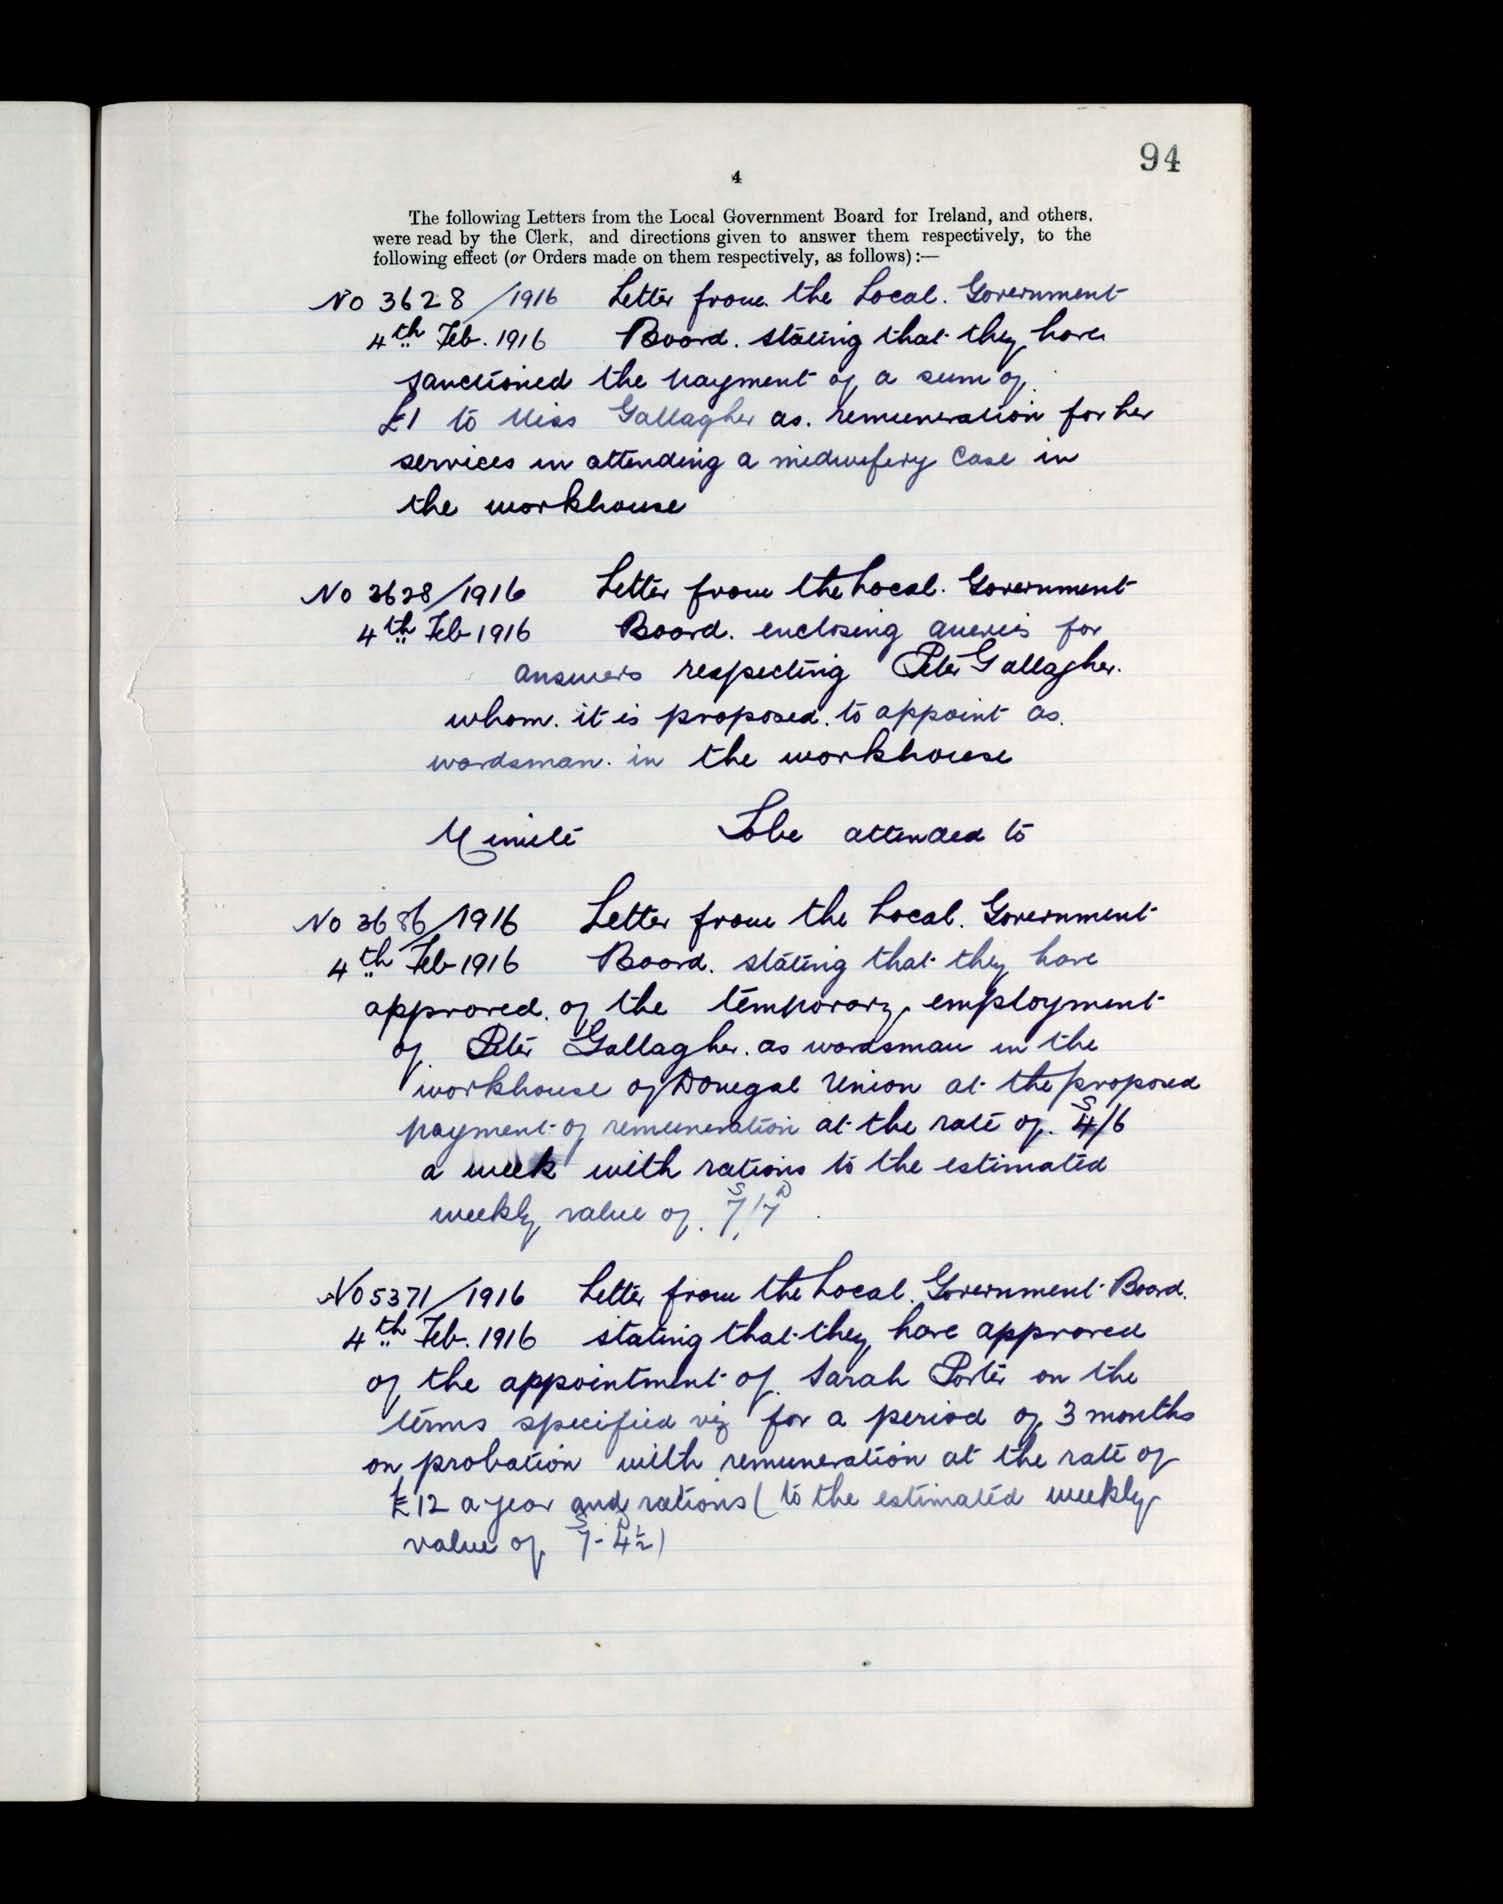 94
4
The following Letters from the Local Government Board for Ireland, and others,
were read by the Clerk, and directions given to answer them respectively, to the
following effect (or Orders made on them respectively, as follows) :—
No 3628/1916 Letter from the Local. Government
4th Feb. 1916 Board. stating that they have
sanctioned the payment of a sum of
£1 to Miss Gallagher as. remuneration for her
services in attending a midwifery case in
the workhouse
No 3628/1916 Letter from the Local. Government
4th Feb 1916 Board. enclosing queries for
answers respecting Peter Gallagher.
whom. it is proposed. to appoint as.
wardsman. in the workhouse
Minute To be attended to
No 3686/1916 Letter from the Local. Government
4th Feb 1916 Board. stating that they have
approved. of the temporary employment
of Peter Gallagher. as wardsman in the
workhouse of Donegal Union at the proposed
payment of remuneration at the rate of. 4s/6
a week with rations to the estimated
weekly value of. 7s/7d
No 5371/1916 Letter from the Local. Government Board.
4th Feb. 1916 stating that they have approved
of the appointment of. Sarah Porter on the
terms specified viz for a period of 3 months
on probation with remuneration at the rate of
£12 a year and rations (to the estimated weekly
value of 7s-4½d)